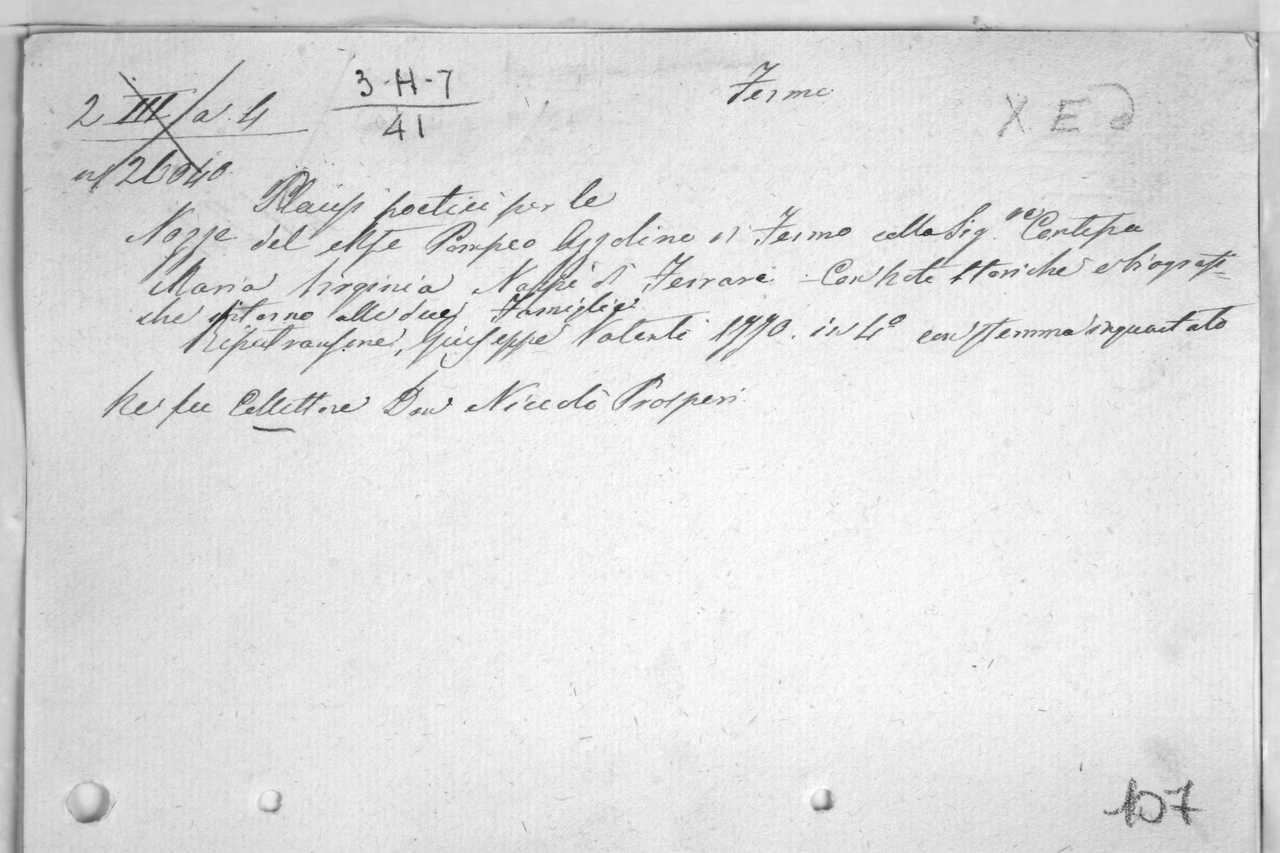 2 III/a. 4
3-H-7
41
Fermo
X E
n° 26040
Plausi poetici per le
Nozze del Mse Pompeo Azzolino di Fermo colla Sig.ra Contessa
Maria Virginia Nappi di Ferrara - Con Note storiche e biografi-
che intorno alle due Famiglie
Ripatransone, Giuseppe Valenti 1770. in 4° con stemma inquartato
Ne fu Collettore Don Niccolò Prosperi
107